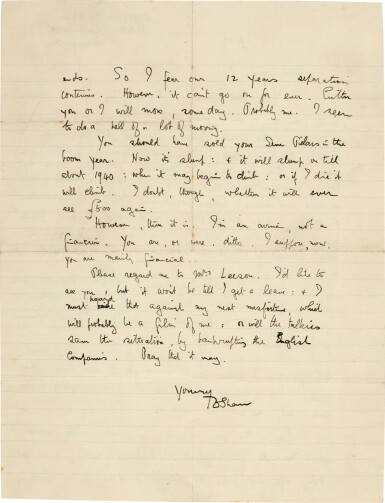 ends. So I fear our 12 years separation
continues. However, it can't go on for ever. Either
you or I will move, some day. Probably me. I seem
to do a hell of a lot of moving.
You should have sold your Seven Pillars in the
boom year. Now it's slump: & it will slump on till
about 1940: when it may begin to climb: or if I die it
will climb. I doubt, though, whether it will ever
see £500 again.
However, there it is. I'm an airman, not a
financier. You are, or were, ditto. I suppose, now,
you are mainly financial.
Please regard me to Mrs Leeson. I'd like to
see you, but it won't be till I get a leave: & I
must hoard that against my next misfortune, which
will probably be a film of me: or will the talkies
save the situation, by bankrupting the English
Companies. Pray that it may.
Yours
TEShaw